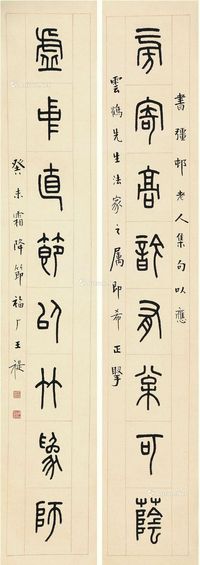 書彊邨老人集句以應
寄高有棠可蔭
雲鶴先生法家之屬即希 正
虛中直節以竹為師
癸未霜降節福厂王禔